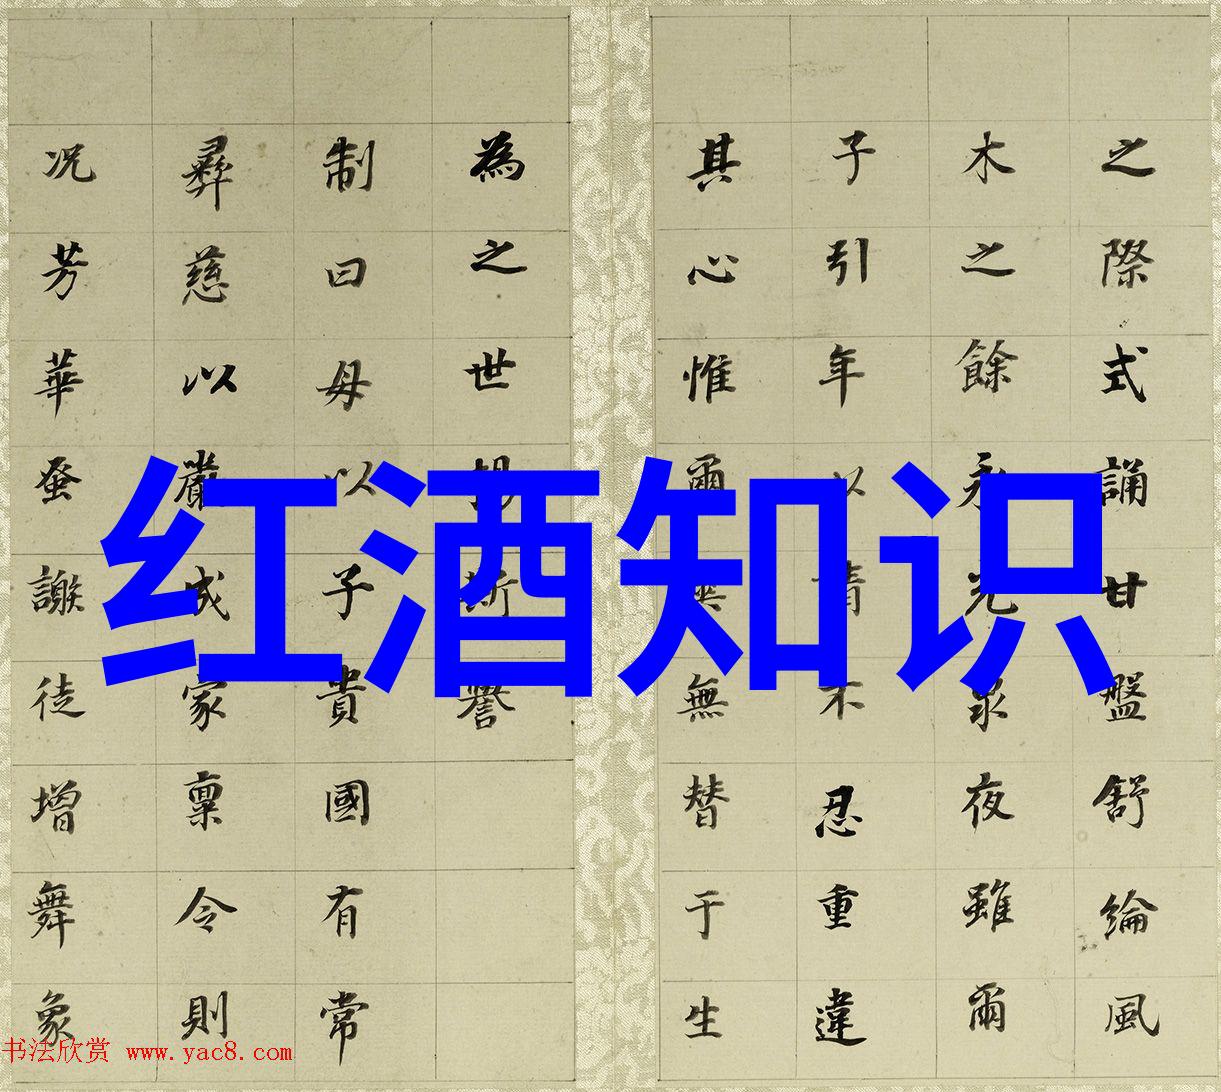 之際式誦廿盤舒綸風
木之餘永光泉夜雖爾
子引年以不忍重違
其心惟爾無替于生
為之世斯譽
制曰母以子貴國有常
彝慈以嚴成家稟令則
況芳華蚤謝徒增舞象
红酒知识
书法欣赏 www.yac8.com